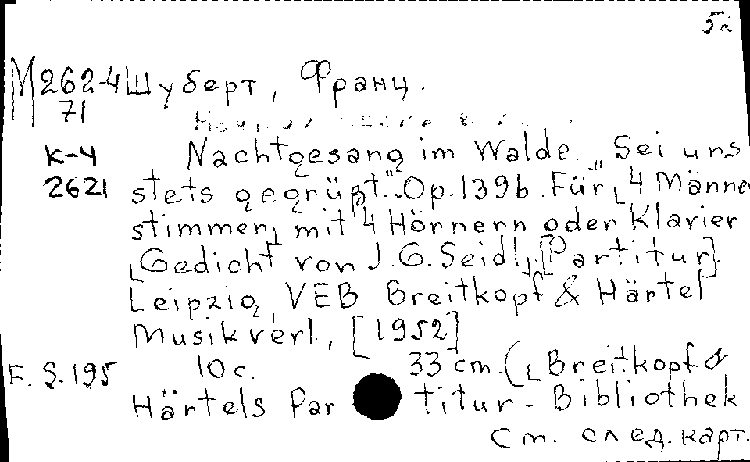 52
М262-4 Шуберт, Франц.
71
К-4 Nachtgesang im Walde. „Sei uns
2621 stets gegrüßt". Op. 139b. Für [4 Männer
stimmen] mit 4 Hörnern oder Klavier
[Gedicht von J. G. Seidl]. [Partitur].
Leipzig, VEB Breitkopf & Härtel
Musikverl., [1952]
E. S. 195 10 с. 33 cm. ([Breitkopf &
Härtels Partitur-Bibliothek
См. след. карт.